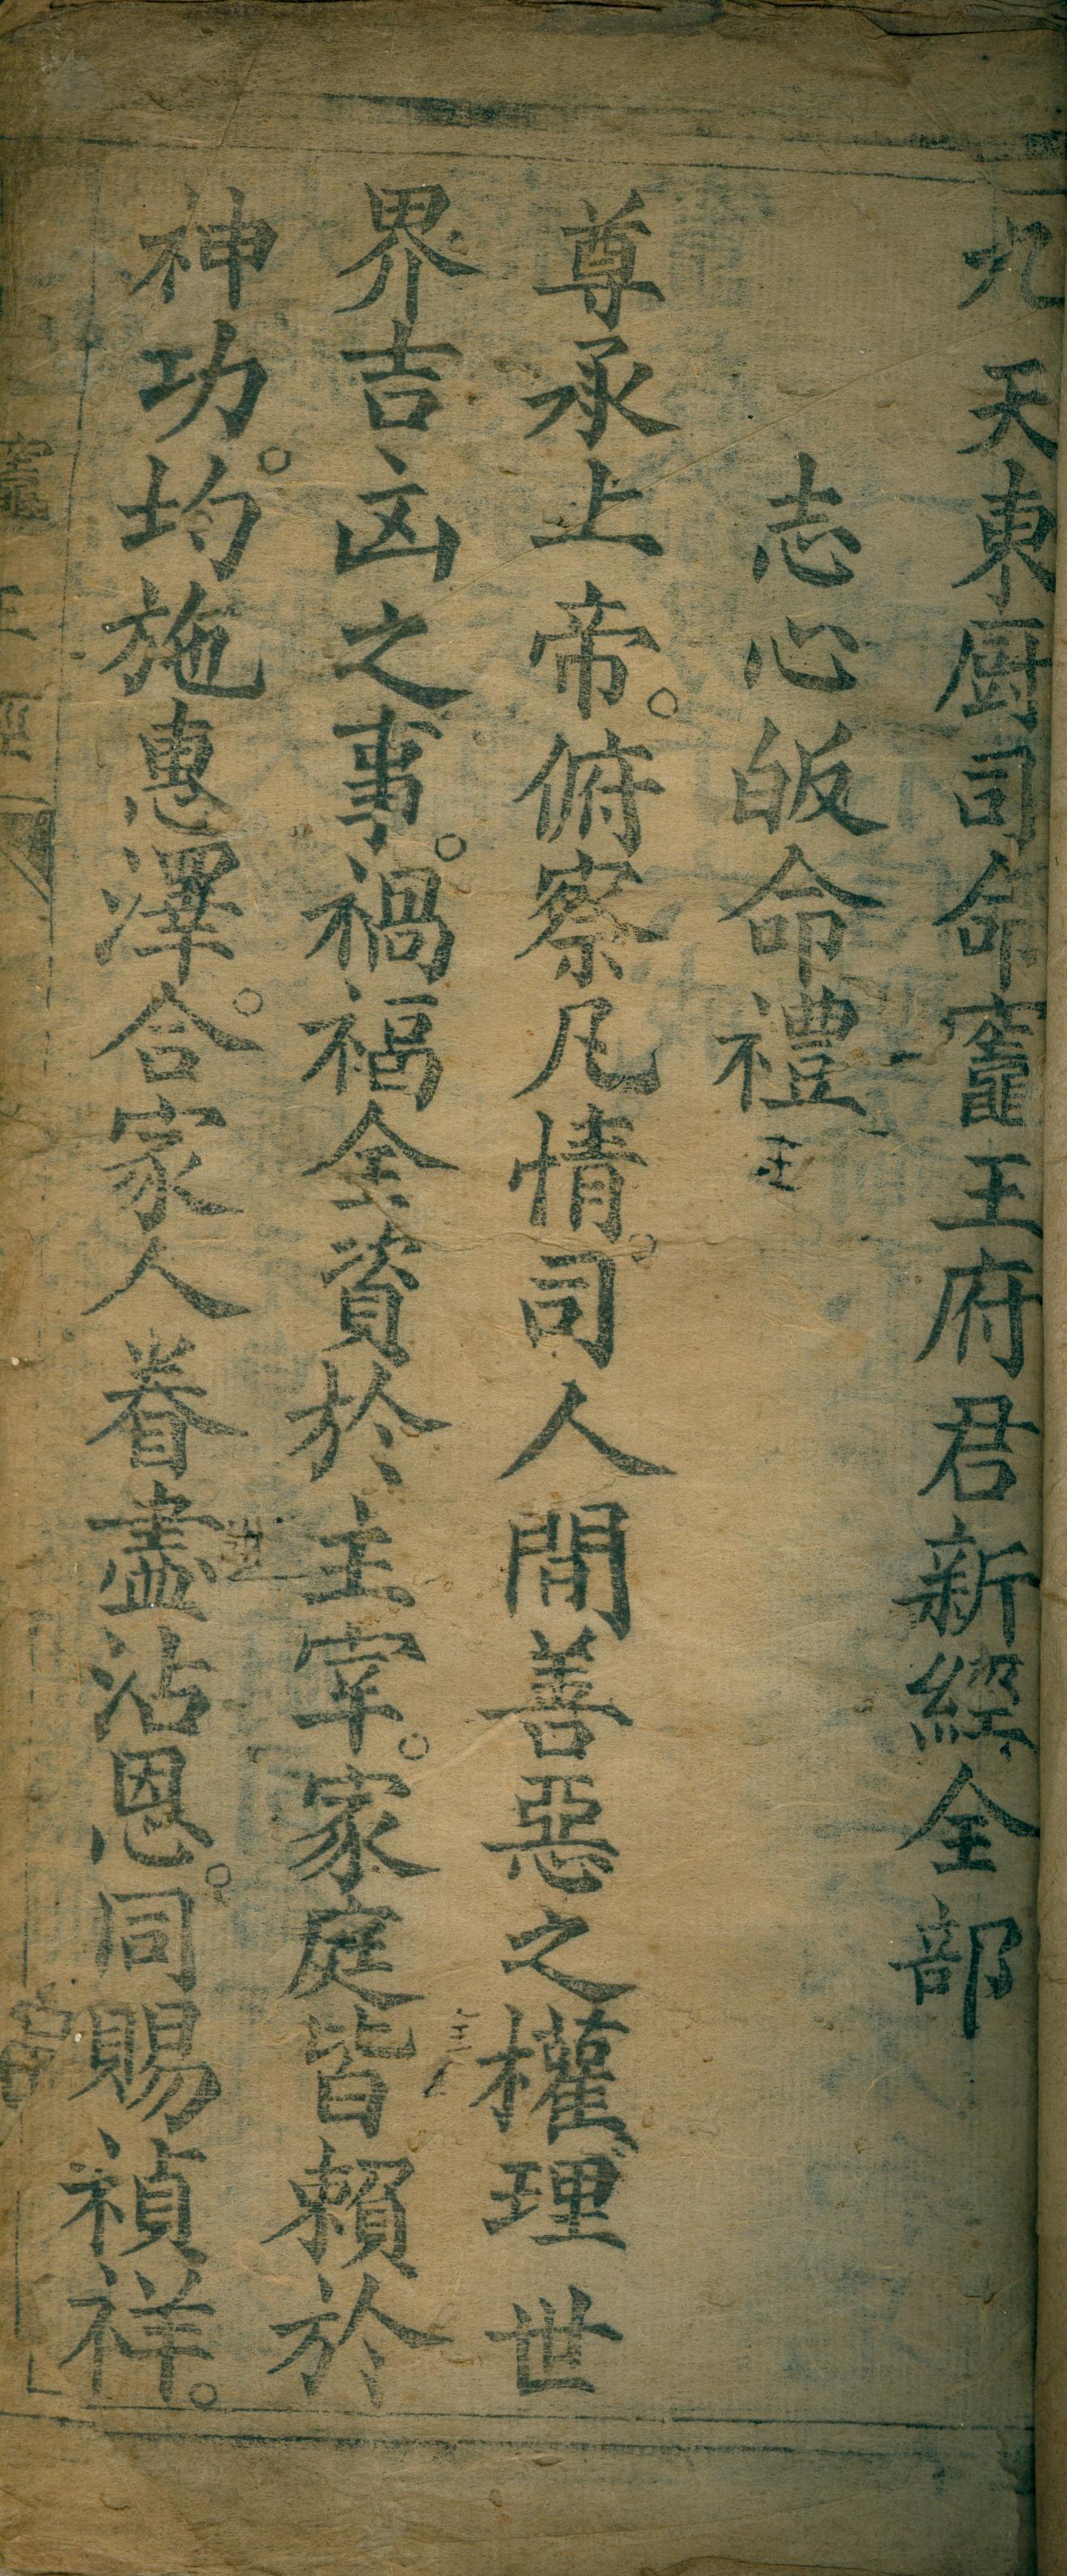 九天東厨司命竈王府君新經全部
志心皈命禮
尊承上帝。俯察凡情。司人間善惡之權理世
界吉凶之事。禍福全資於主宰。家庭皆賴於
神功。均施惠澤。合家人眷盡沾恩。同賜禎祥。
竈王經